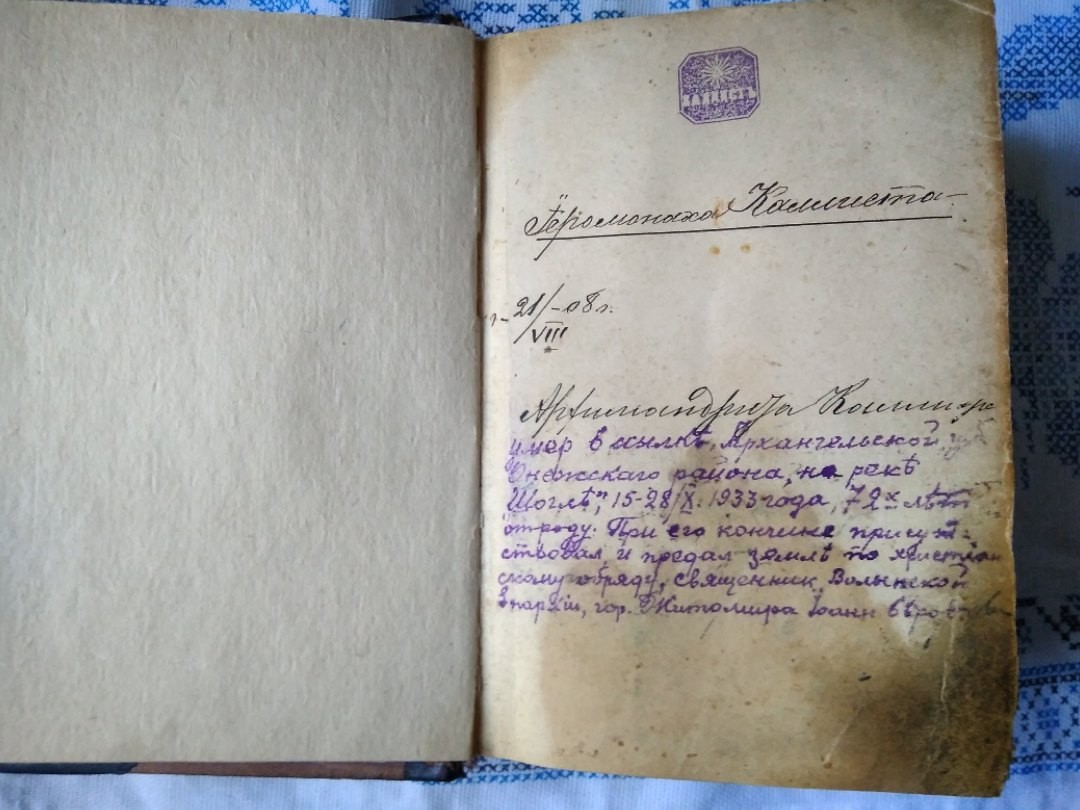 Іеромонаха Каллиста
21/VIII - 08 г.
Архимандрита
умер в ссылкѣ, Архангельской, губ
Онежскаго района, на рекѣ
"Шоглѣ", 15-28/X. 1933 года, 72х лѣт
от роду. При его кончине присут-
ствовал и предал землѣ по христіан
скому обряду, священник Волынской
Епархіи, гор. Житомира Іоанн